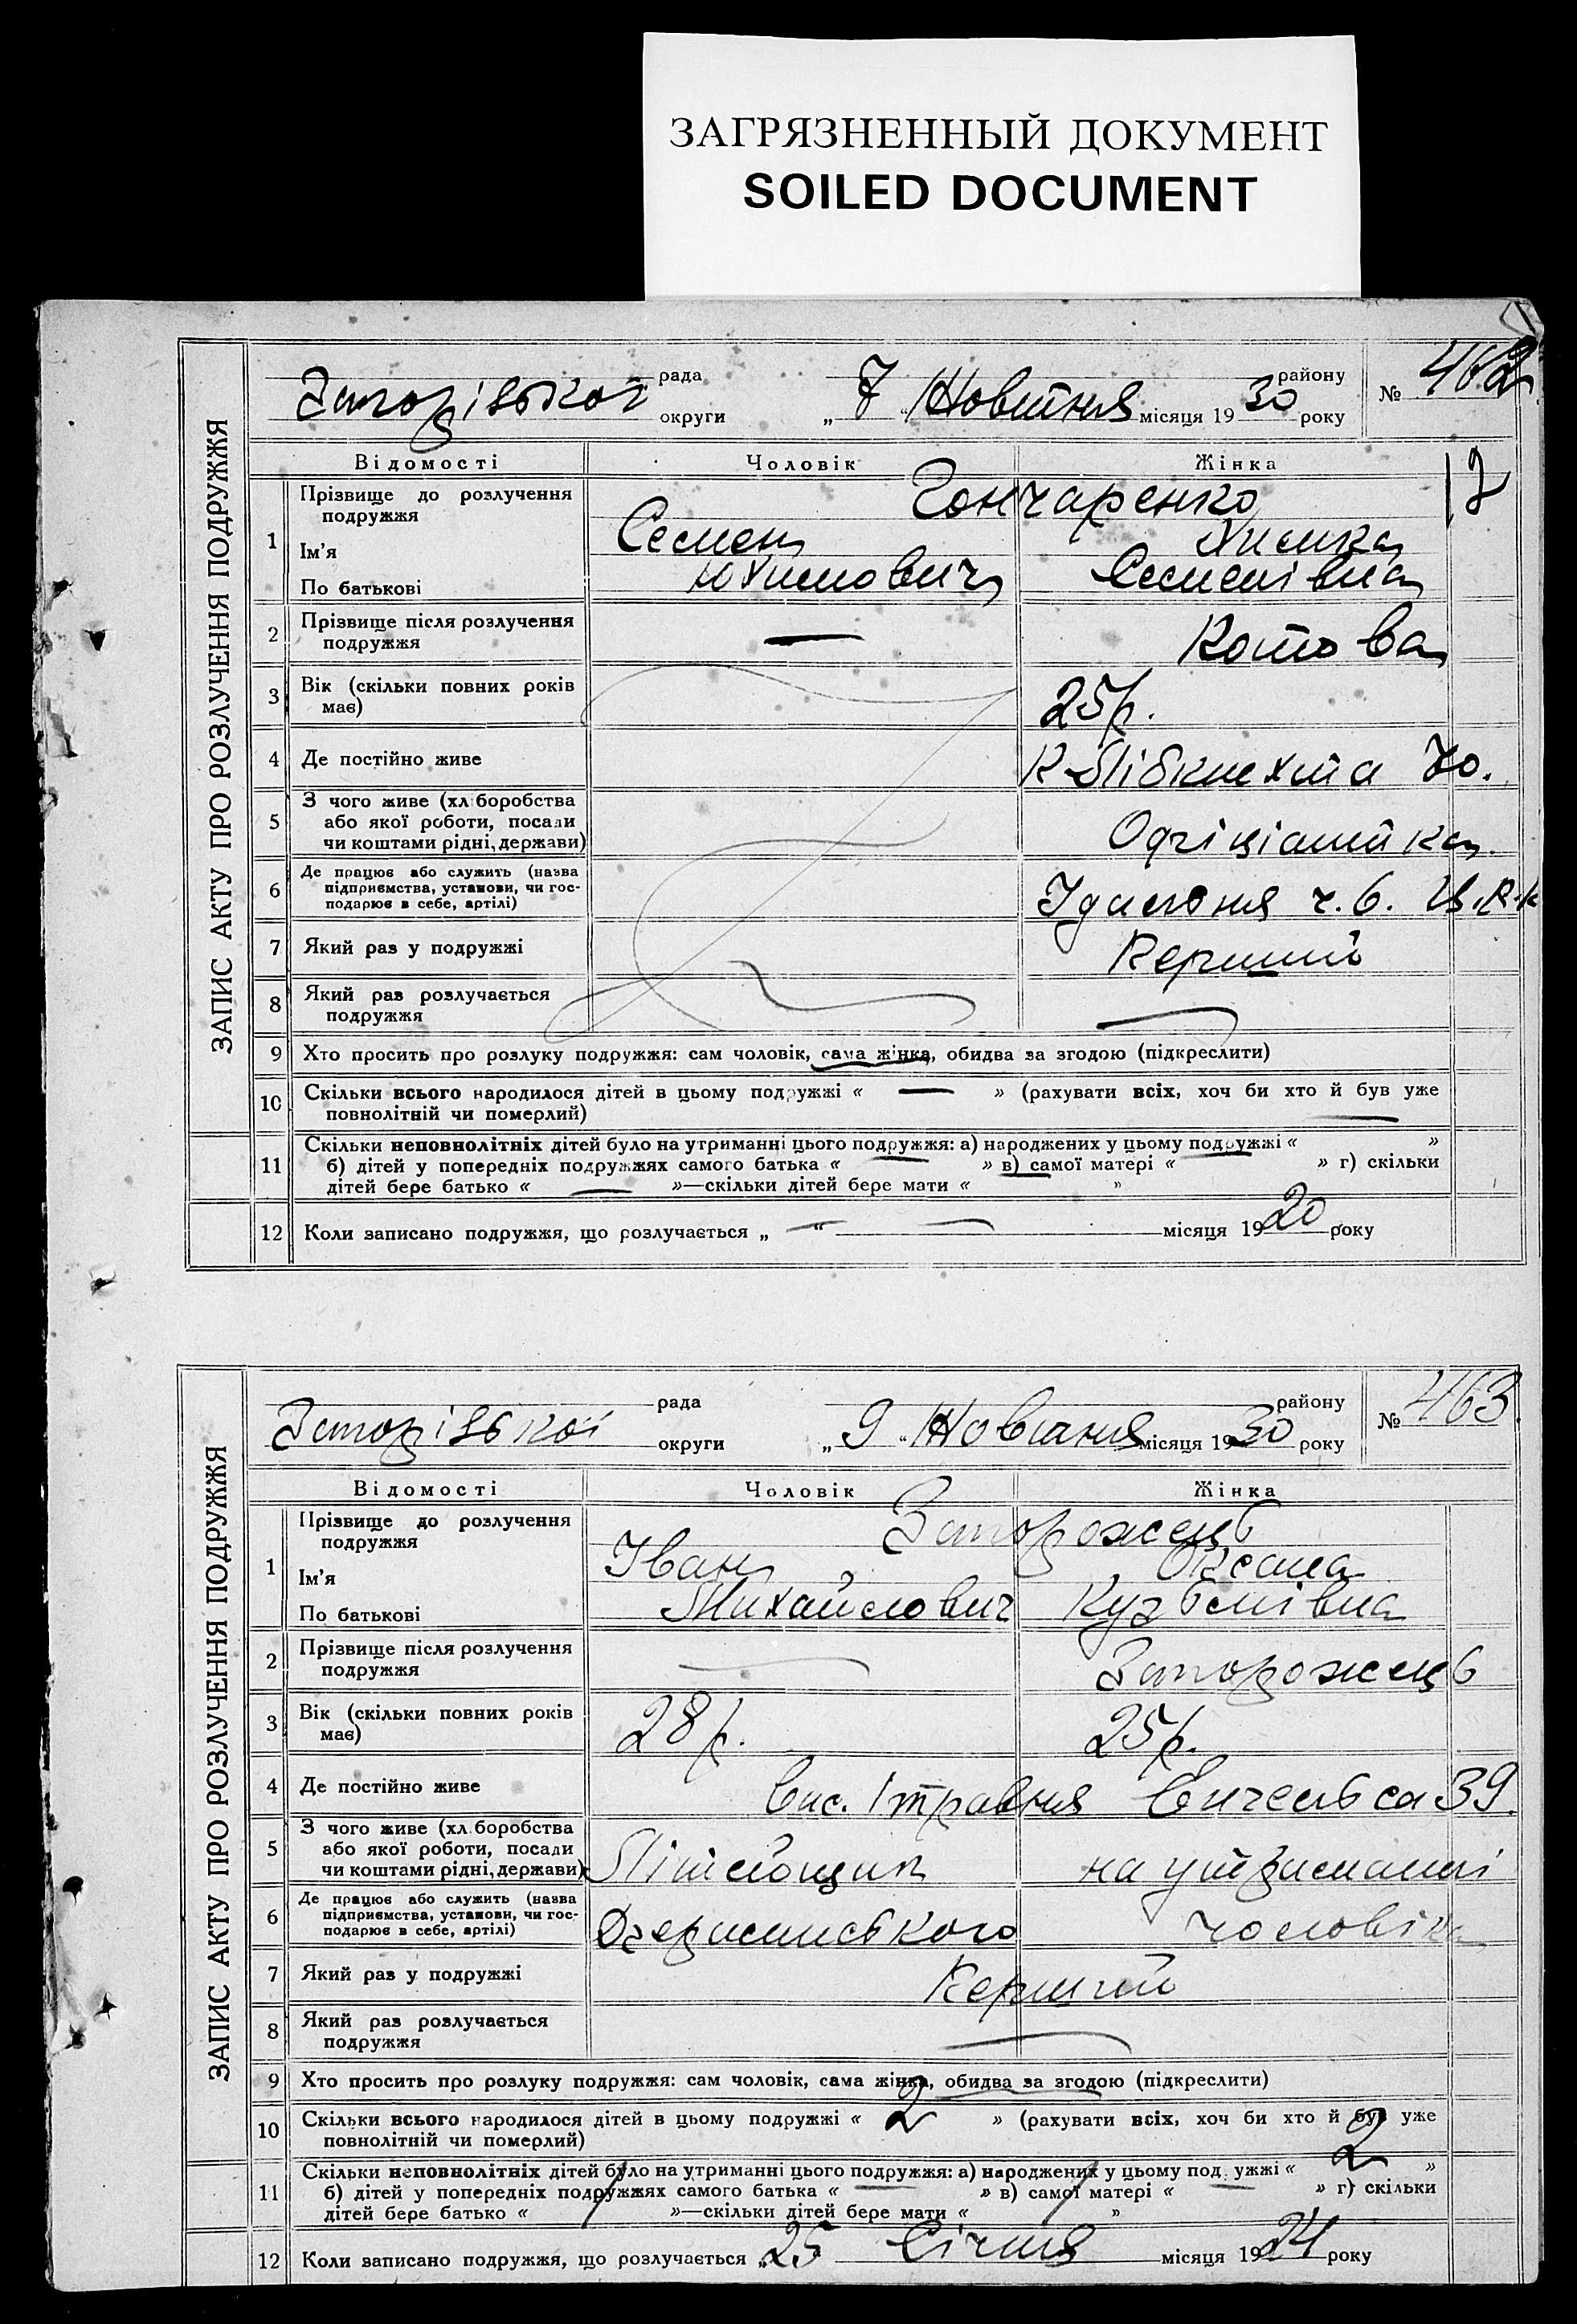 ЗАГРЯЗНЕННЫЙ ДОКУМЕНТ
SOILED DOCUMENT
ЗАПИС АКТУ ПРО РОЗЛУЧЕННЯ ПОДРУЖЖЯ
рада району № 462
Запорізької округи „ 7 " Жовтня місяця 1930 року
Відомості Чоловік Жінка
1 Прізвище до розлучення подружжя Гончаренко
Ім'я Семен Химка
По батькові Юхимович Семенівна
2 Прізвище після розлучення подружжя — Котова
3 Вік (скільки повних років має) 25 р.
4 Де постійно живе К Лібкнехта 70.
5 З чого живе (хліборобства або якої роботи, посади чи коштами рідні, держави) Офіціантка
6 Де працює або служить (назва підприємства, установи, чи господарює в себе, артілі) Їдальня ч. 6. Ц.Р.К
7 Який раз у подружжі Перший
8 Який раз розлучається подружжя —
9 Хто просить про розлуку подружжя: сам чоловік, сама жінка, обидва за згодою (підкреслити)
10 Скільки всього народилося дітей в цьому подружжі « — » (рахувати всіх, хоч би хто й був уже
повнолітній чи померлий)
11 Скільки неповнолітніх дітей було на утриманні цього подружжя: а) народжених у цьому подружжі « — »
б) дітей у попередніх подружжях самого батька « — » в) самої матері « — » г) скільки
дітей бере батько « — »—скільки дітей бере мати « »
12 Коли записано подружжя, що розлучається „ — " — місяця 1920 року
ЗАПИС АКТУ ПРО РОЗЛУЧЕННЯ ПОДРУЖЖЯ
рада району № 463.
Запорізької округи „ 9 " Жовтня місяця 1930 року
Відомості Чоловік Жінка
1 Прізвище до розлучення подружжя Запорожець
Ім'я Іван Оксана
По батькові Михайлович Кузьмівна
2 Прізвище після розлучення подружжя — Запорожець
3 Вік (скільки повних років має) 28 р. 25 р.
4 Де постійно живе Вис. 1 травня Енгельса 39.
5 З чого живе (хліборобства або якої роботи, посади чи коштами рідні, держави) Літейщик на утриманні
6 Де працює або служить (назва підприємства, установи, чи господарює в себе, артілі) Джержинського чоловіка
7 Який раз у подружжі Перший
8 Який раз розлучається подружжя —
9 Хто просить про розлуку подружжя: сам чоловік, сама жінка, обидва за згодою (підкреслити)
10 Скільки всього народилося дітей в цьому подружжі « 2 » (рахувати всіх, хоч би хто й був уже
повнолітній чи померлий)
11 Скільки неповнолітніх дітей було на утриманні цього подружжя: а) народжених у цьому подружжі « 2 »
б) дітей у попередніх подружжях самого батька « — » в) самої матері « — » г) скільки
дітей бере батько « 1 »—скільки дітей бере мати « 1 »
12 Коли записано подружжя, що розлучається „ 25 Січня місяця 1924 року